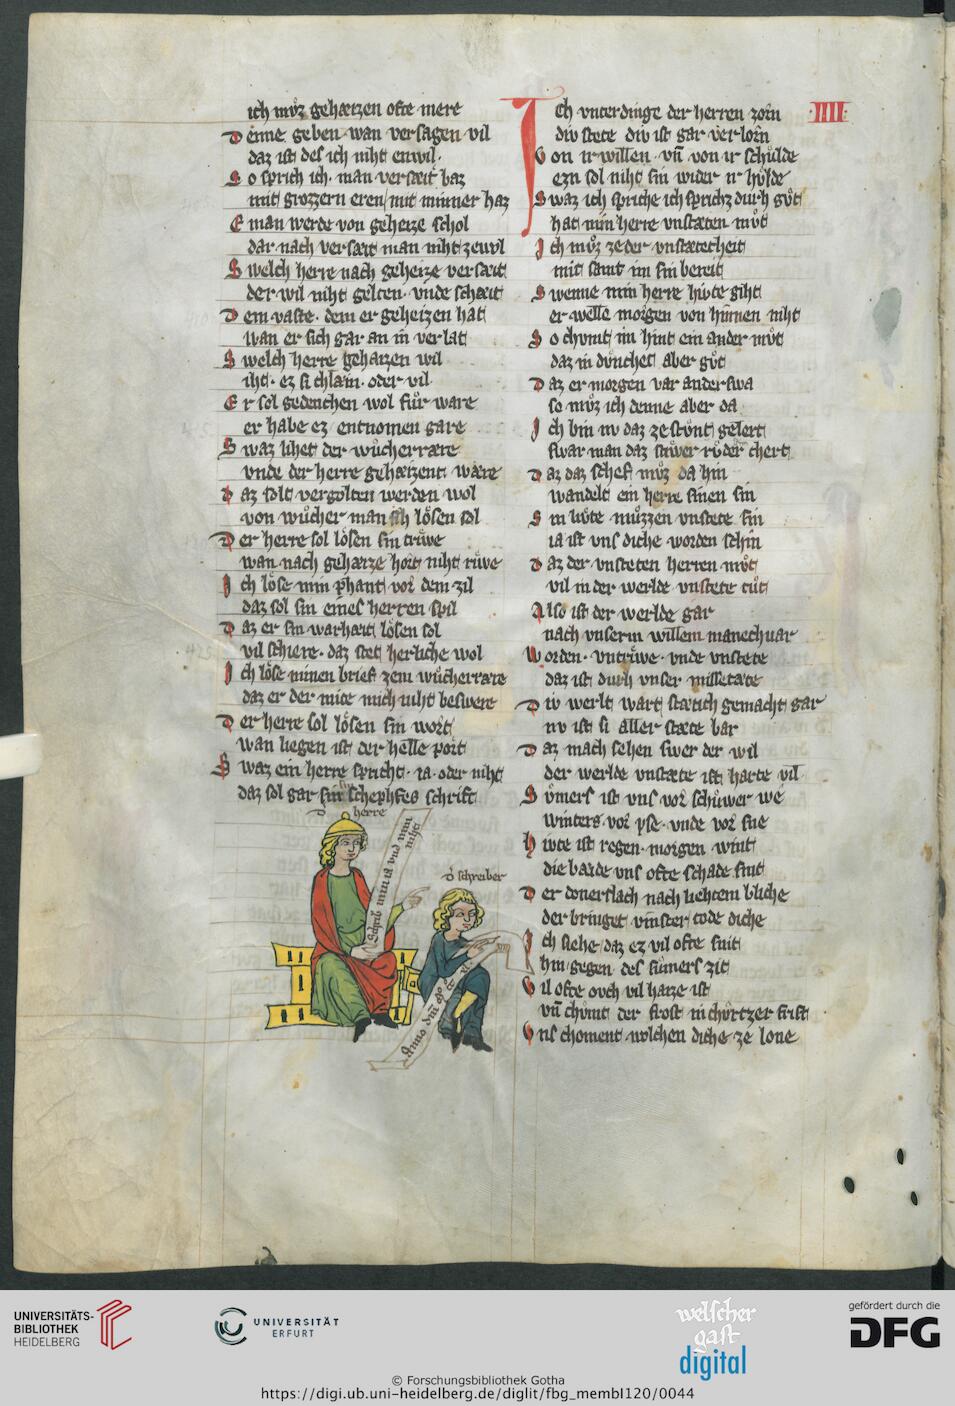 ich mvͦz gehæizen ofte mere
Denne geben wan versagen vil
daz ist des ich niht enwil·
So sprich ich· man versæit baz
mit grozzern eren mit minner haz
E man werde von geheize schol
dar nach versæit man niht ze wol
Swelch herre nach geheize versæit
der wil niht gelten· vnde schæit
Dem vaste· dem er geheizen hat
wan er sich gar an in verlat
Swelch herre gehæizen wil
iht· ez si chlæin· oder vil
Er sol gedenchen wol fuͤr ware
er habe ez entnomen gare
Swaz lihet der wuͦcherrære
vnde der herre gehæizent wære
Daz solt vergolten werden wol
von wuͦcher man sich loͤsen sol
Der herre sol loͤsen sin triwe
wan nach gehæize hort niht riwe
Ich loͤse min phant vor dem zil
daz sol sin eines herren spil
Daz er sin warhæit loͤsen sol
vil schiere· daz stet herliche wol
Ich loͤse minen brief zem wuͦcherrære
daz er der mite mich niht beswere
Der herre sol loͤsen sin wort
wan liegen ist der helle port
Swaz ein herre spricht· ia· oder niht
daz sol gar sin schephfes schrift
dˀ herre
Schrib min ia vnd min niht
dˀ schreiber
Anno dm̄
IIII
Ich vnterdinge der herren zorn
div stete div ist gar verlorn
Von ir willen· vn̄ von ir schulde
ezn sol niht sin wider ir hulde
Swaz ich spriche ich sprichz durh guͦt
hat min herre vnstæten muͦt
Ich muͦz ze der vnstætecheit
mit samt im sin bereit
Swenne min herre hivte giht
er welle morgen von hinnen niht
So chvmt im hint ein ander muͦt
daz in dunchet aber guͦt
Daz er morgen var anderswa
so muͦz ich denne aber da
Ich bin nv daz ze stunt gelert
swar man daz stiwer ruͦder chert
Daz daz schef muͦz da hin
wandelt ein herre sinen sin
Sin livte muͤzzen vnstete sin
ia ist vns diche worden schin
Daz der vnsteten herren muͦt
vil in der werlde vnstete tuͦt
Also ist der werlde gar
nach vnserm willem manechuar
Worden· vntriwe· vnde vnstete
daz ist durh vnser missetæte
Div werlt wart stætich gemacht gar
nv ist si aller stæte bar
Daz mach sehen swer der wil
der werlde vnstæte ist harte vil
Svmers ist vns vor schuͦwer we
winters· vor yse· vnde vor sne
Hivte ist regen· morgen wint
die bæide vns ofte schade sint
Der donerslach nach liehtem bliche
der bringet vinster tode diche
Ich siehe daz ez vil ofte snit
hin gegen des sumers zit
Vil ofte ovch vil haize ist
vn̄ chumt der frost in churtzer frist
Vns choment wolchen diche ze lone
UNIVERSITÄTS-
BIBLIOTHEK
HEIDELBERG
UNIVERSITÄT
ERFURT
welscher
gast
digital
gefördert durch die
DFG
© Forschungsbibliothek Gotha
https://digi.ub.uni-heidelberg.de/diglit/fbg_membI120/0044